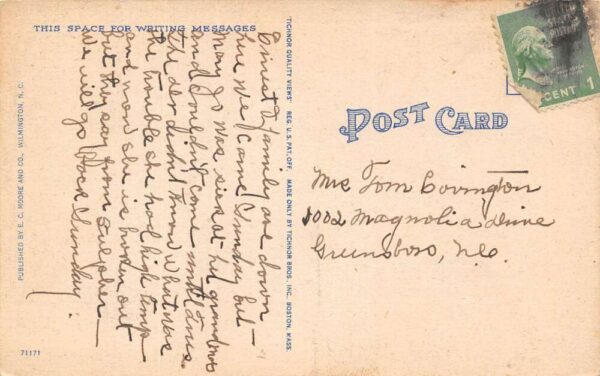 THIS SPACE FOR WRITING MESSAGES
Ernest & family are down
here we came Sunday but —
May Jo was sick at her grandma's
and couldn't come until Tues.
the dr didn't know what was
the trouble she had high temp
and now she is broken out
but they say from sulpher —
We will go back Sunday.
PUBLISHED BY E. C. MOORE AND CO., WILMINGTON, N. C.
71171
TICHNOR QUALITY VIEWS REG. U. S. PAT. OFF. MADE ONLY BY TICHNOR BROS. INC. BOSTON, MASS.
POST CARD
CENT 1
Mrs Tom Covington
1002 Magnolia Drive
Greensboro, N.C.